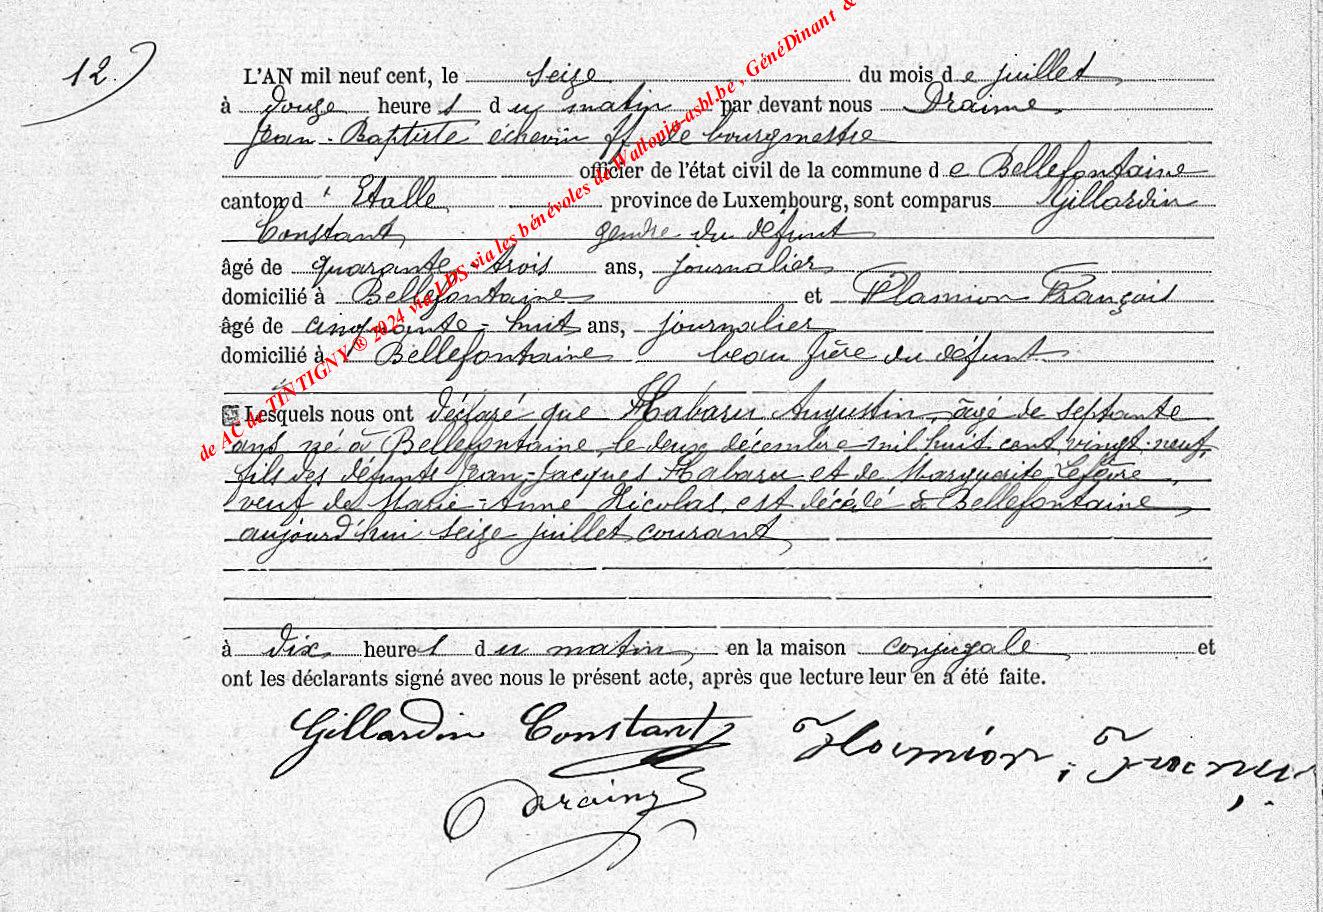 12.
L'AN mil neuf cent, le seize du mois de juillet
à douze heures du matin par devant nous Draime
Jean-Baptiste échevin ff de bourgmestre
officier de l'état civil de la commune de Bellefontaine
canton d'Etalle province de Luxembourg, sont comparus Gillardin
Constant gendre du défunt
âgé de quarante trois ans, journalier
domicilié à Bellefontaine et Flamion François
âgé de cinquante-huit ans, journalier
domicilié à Bellefontaine beau frère du défunt
Lesquels nous ont déclaré que Habaru Augustin, âgé de septante
ans né à Bellefontaine, le deux décembre mil huit cent vingt-neuf,
fils des défunts Jean-Jacques Habaru et de Marguerite Lefèvre,
veuf de Marie-Anne Nicolas, est décédé à Bellefontaine,
aujourd'hui seize juillet courant,
à dix heures du matin, en la maison conjugale et
ont les déclarants signé avec nous le présent acte, après que lecture leur en a été faite.
Gillardin Constant Flamion, Françcis
Draime
de AC de TINTIGNY ® 2024 via LDS via les bénévoles de Wallonia-asbl.be , GénéDinant &